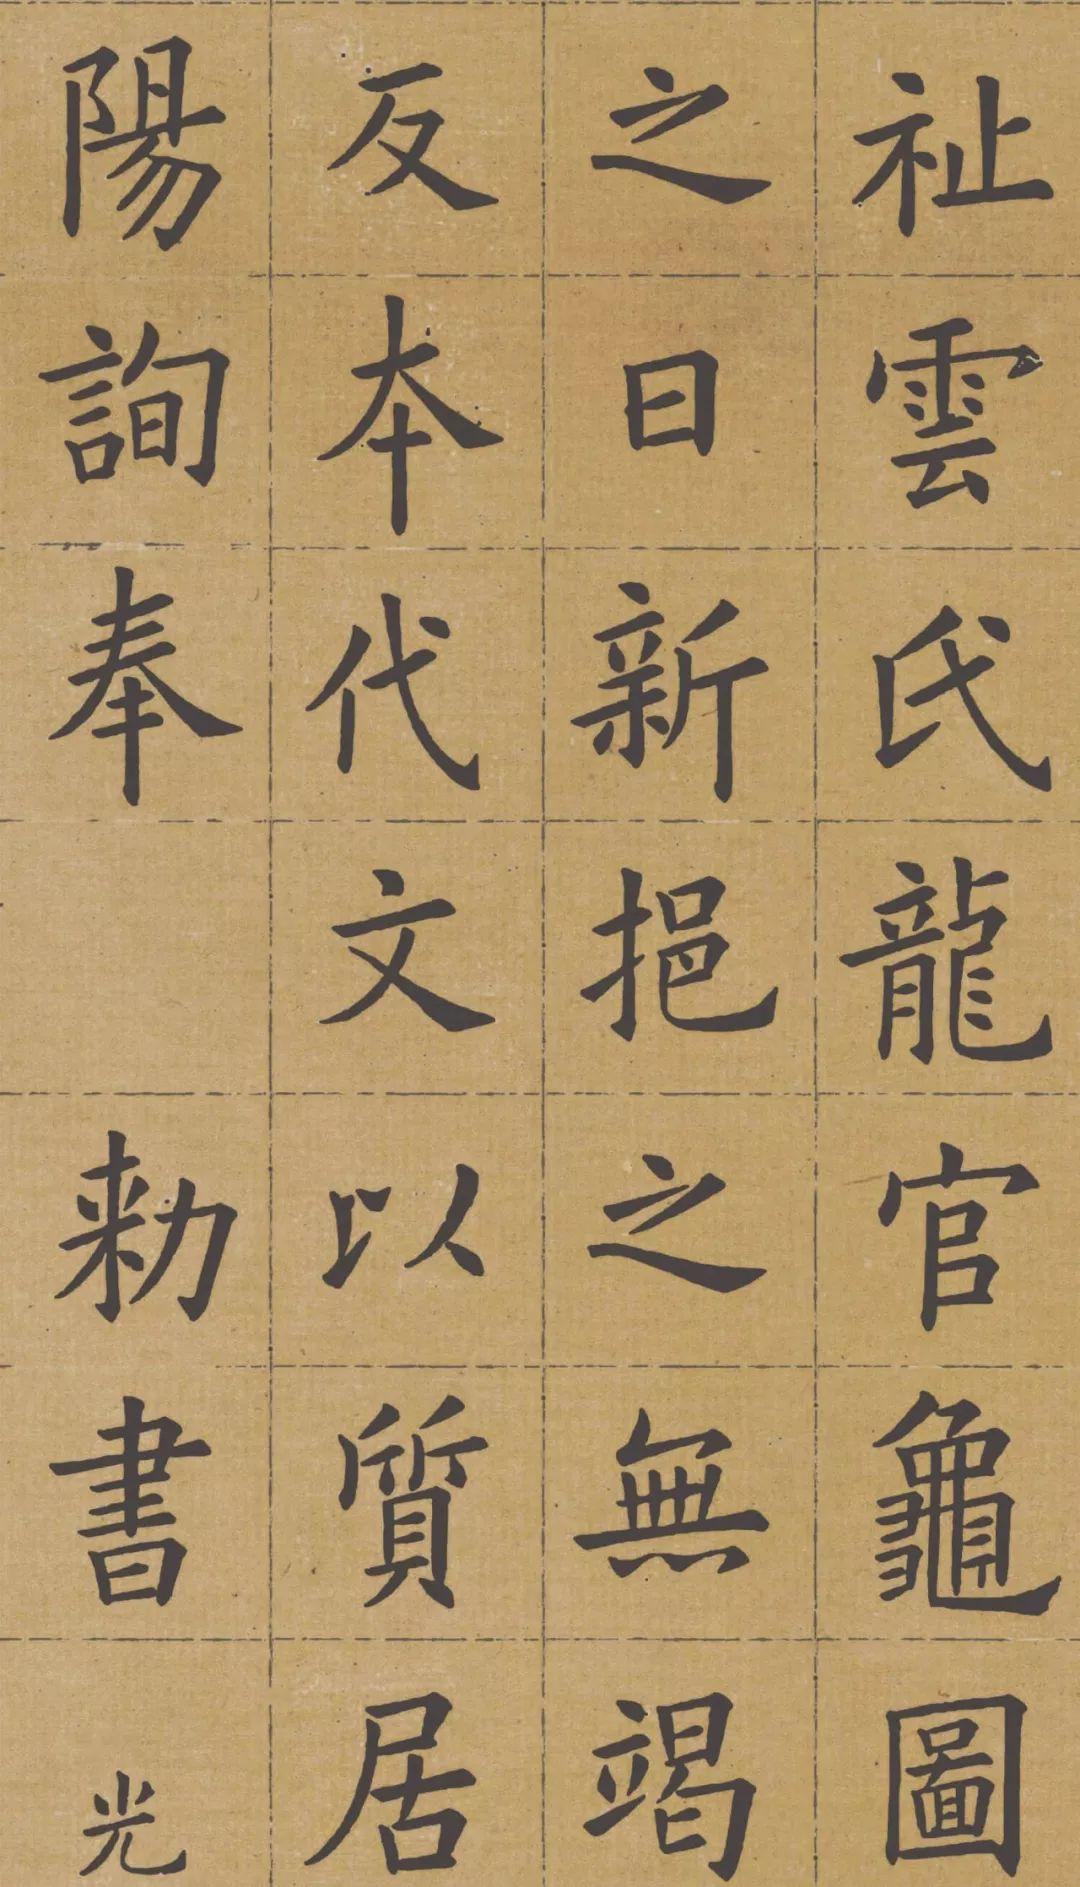 祉雲氏龍官龜圖
之日新挹之無竭
反本代文以質居
陽詢奉 勑書光